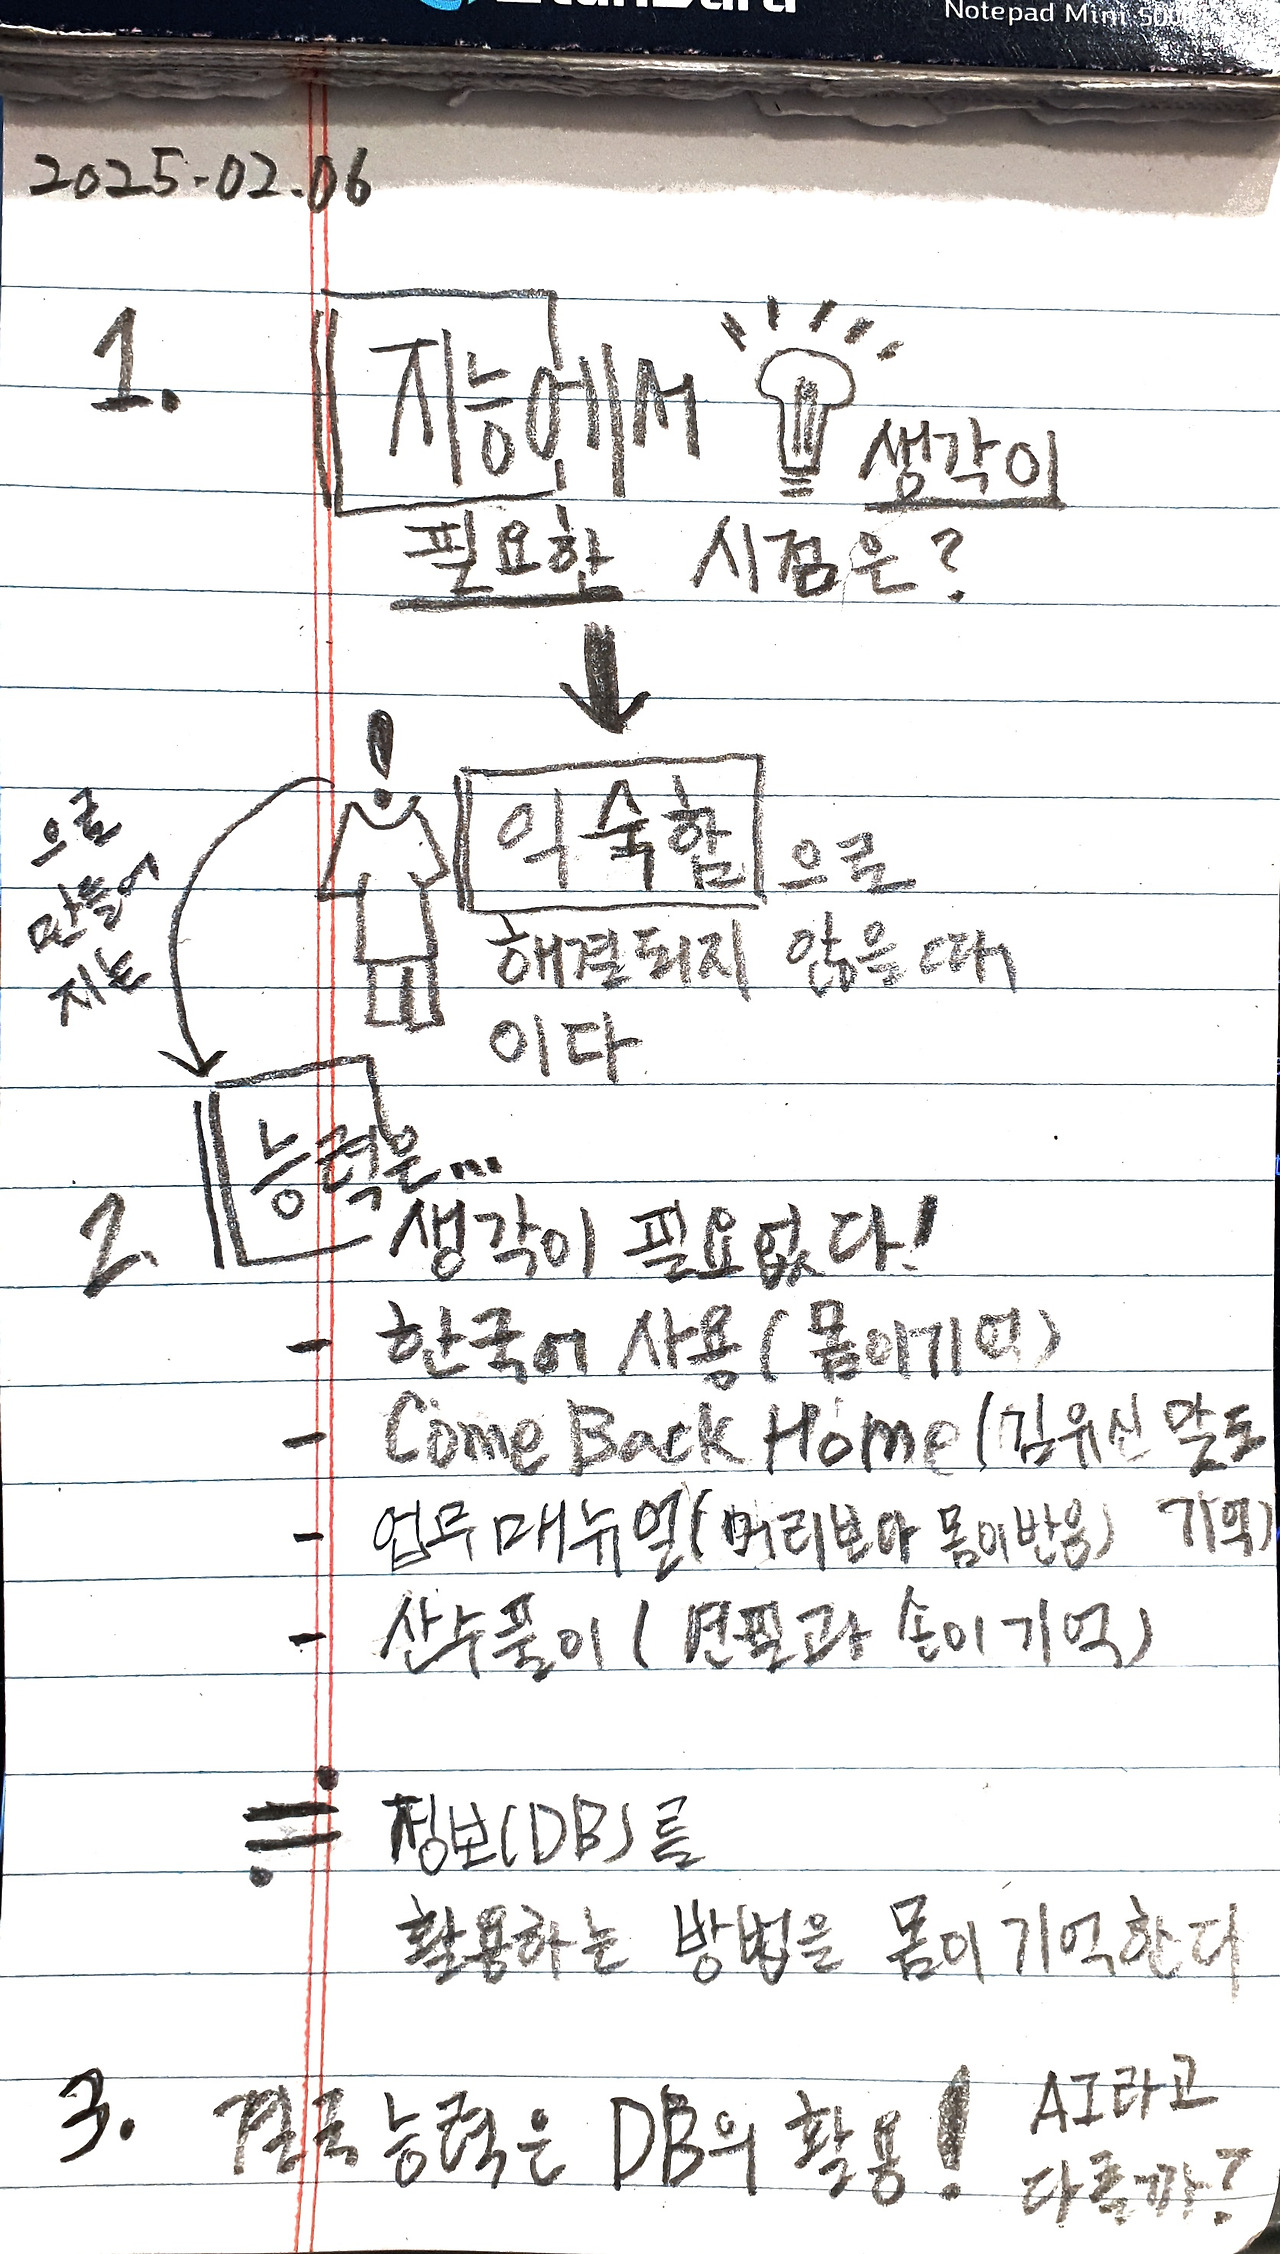 Notepad Mini 500
2025.02.06
1. 지능에서
생각이
필요한 시점은?
익숙함으로
해결되지 않을 때
이다
으로
만들어
지는
능력은...
2. 생각이 필요없다!
- 한국어 사용(몸이기억)
- Come Back Home(김유신 말도
기억)
- 업무매뉴얼(머리보다 몸이반응)
- 산수풀이(연필과 손이기억)
정보(DB)를
활용하는 방법을 몸이기억한다
3. 결국 능력은 DB의 활용!
AI라고
다를까?